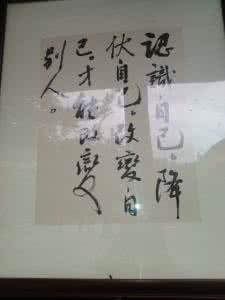 認識自己。降
伏自己。改變自
己。才能改變
別人。